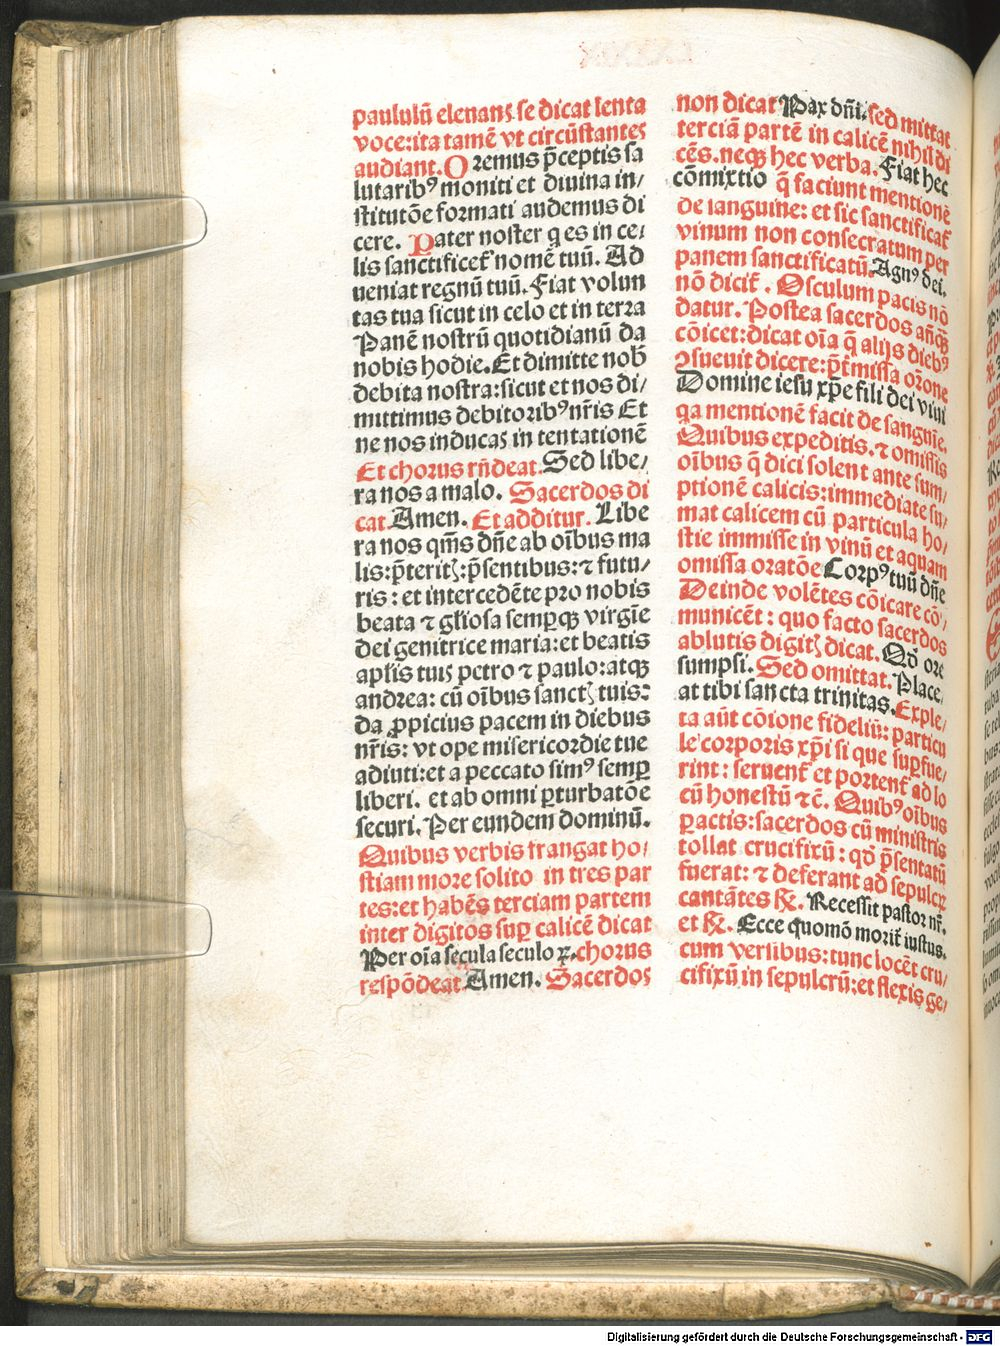 paululū elenans se dicat lenta
voce:ita tamē vt circūstantes
audiant. Oremus p̄ceptis sa
lutarib⁹ moniti et diuina in/
stitutōe formati audemus di
cere. Pater noster q̄ es in ce/
lis sanctificet᷑ nomē tuū. Ad
ueniat regnū tuū. Fiat volun
tas tua sicut in celo et in terra
Panē nostrū quotidianū da
nobis hodie. Et dimitte nob̄
debita nostra:sicut et nos di/
mittimus debitorib⁹ nr̄is Et
ne nos inducas in tentationē
Et chorus rn̄deat. Sed libe/
ra nos a malo. Sacerdos di
cat. Amen. Et additur. Libe
ra nos qm̄s dn̄e ab oībus ma
lis:p̄teritꝭ:p̄sentibus:⁊ futu/
ris: et intercedēte pro nobis
beata ⁊ gl̄iosa semꝑqꝫ virgīe
dei genitrice maria:et beatis
apl̄is tuis petro ⁊ paulo:atqꝫ
andrea: cū oībus sanctꝭ tuis:
da ꝓpicius pacem in diebus
nr̄is: vt ope misericordie tue
adiuti:et a peccato sim⁹ semꝑ
liberi. et ab omni ꝑturbatōe
securi. Per eundem dominū.
Quibus verbis frangat ho/
stiam more solito in tres par
tes:et habēs terciam partem
inter digitos suꝑ calicē dicat
Per oīa secula seculoꝝ. chorus
respōdeat Amen. Sacerdos
non dicat Pax dn̄i. sed mittat
terciā partē in calicē nihil di
cēs. neqꝫ hec verba. Fiat hec
cōmixtio q̄ faciunt mentionē
de sanguine: et sic sanctificat᷑
vinum non consecratum per
panem sanctificatū. Agn⁹ dei.
nō dicit᷑. Osculum pacis nō
datur. Postea sacerdos añqꝫ
cōicet:dicat oīa q̄ alijs dieb⁹
ꝯsueuit dicere:p̄t missa or̄one
Domine iesu xp̄e fili dei viui
q̄a mentionē facit de sanguīe.
Quibus expeditis. ⁊ omissis
oībus q̄ dici solent ante sum/
ptionē calicis:immediate su/
mat calicem cū particula ho/
stie immisse in vinū et aquam
omissa oratōe Corp⁹ tuū dn̄e
Deinde volētes cōicare cō/
municēt: quo facto sacerdos
ablutis digitꝭ dicat. Qd̄ ore
sumpsi. Sed omittat. Place/
at tibi sancta trinitas. Exple/
ta aūt cōione fideliū: particu
le corporis xp̄i si que suꝑfue/
rint: seruent᷑ et portent᷑ ad lo
cū honestū ⁊c̄. Quib⁹ oībus
ꝑactis:sacerdos cū ministris
tollat crucifixū: qd̄ p̄sentatū
fuerat: ⁊ deferant ad sepulcꝝ
cantātes ℞. Recessit pastor nr̄.
et ℞. Ecce quomō morit᷑ iustus.
cum versibus:tunc locēt cru/
cifixū in sepulcrū:et flexis ge/
Digitalisierung gefördert durch die Deutsche Forschungsgemeinschaft - DFG